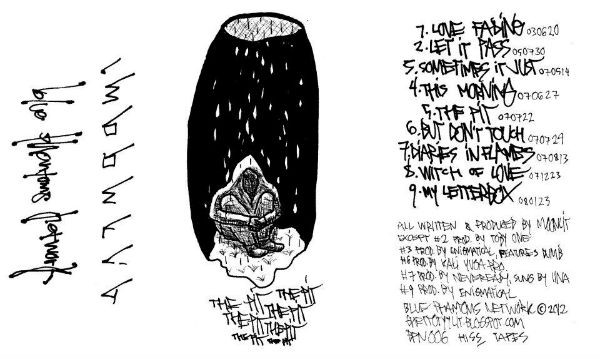 blue phantoms network
MOONLIT
THE PIT THE PIT
THE PIT THE PIT
THE PIT THE PIT
THE PIT THE PIT
1. LOVE FADING 030620
2. LET IT PASS 050730
3. SOMETIMES IT JUST 070514
4. THIS MORNING 070627
5. THE PIT 070722
6. BUT DON'T TOUCH 070729
7. DIARIES IN FLAMES 070813
8. WITCH OF LOVE 071223
9. MY LETTERBOX 080123
ALL WRITTEN & PRODUCED BY MOONLIT
EXCEPT #2 PROD. BY TOBY ONE
#3 PROD. BY ENIGMATICAL, FEATURES DUMB
#6 PROD. BY KALI YUGA BRO.
#7 PROD. BY NEVEREADY, SUNG BY UNA
#9 PROD. BY ENIGMATICAL
BLUE PHANTOMS NETWORK © 2012
BLOGSPOT.COM
BPN006 HISS TAPES